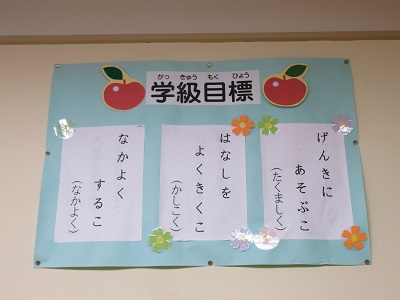 がっ きゅう もく ひょう
学級目標
げんきに
あそぶこ
(たくましく)
はなしを
よくきくこ
(かしこく)
なかよく
するこ
(なかよく)